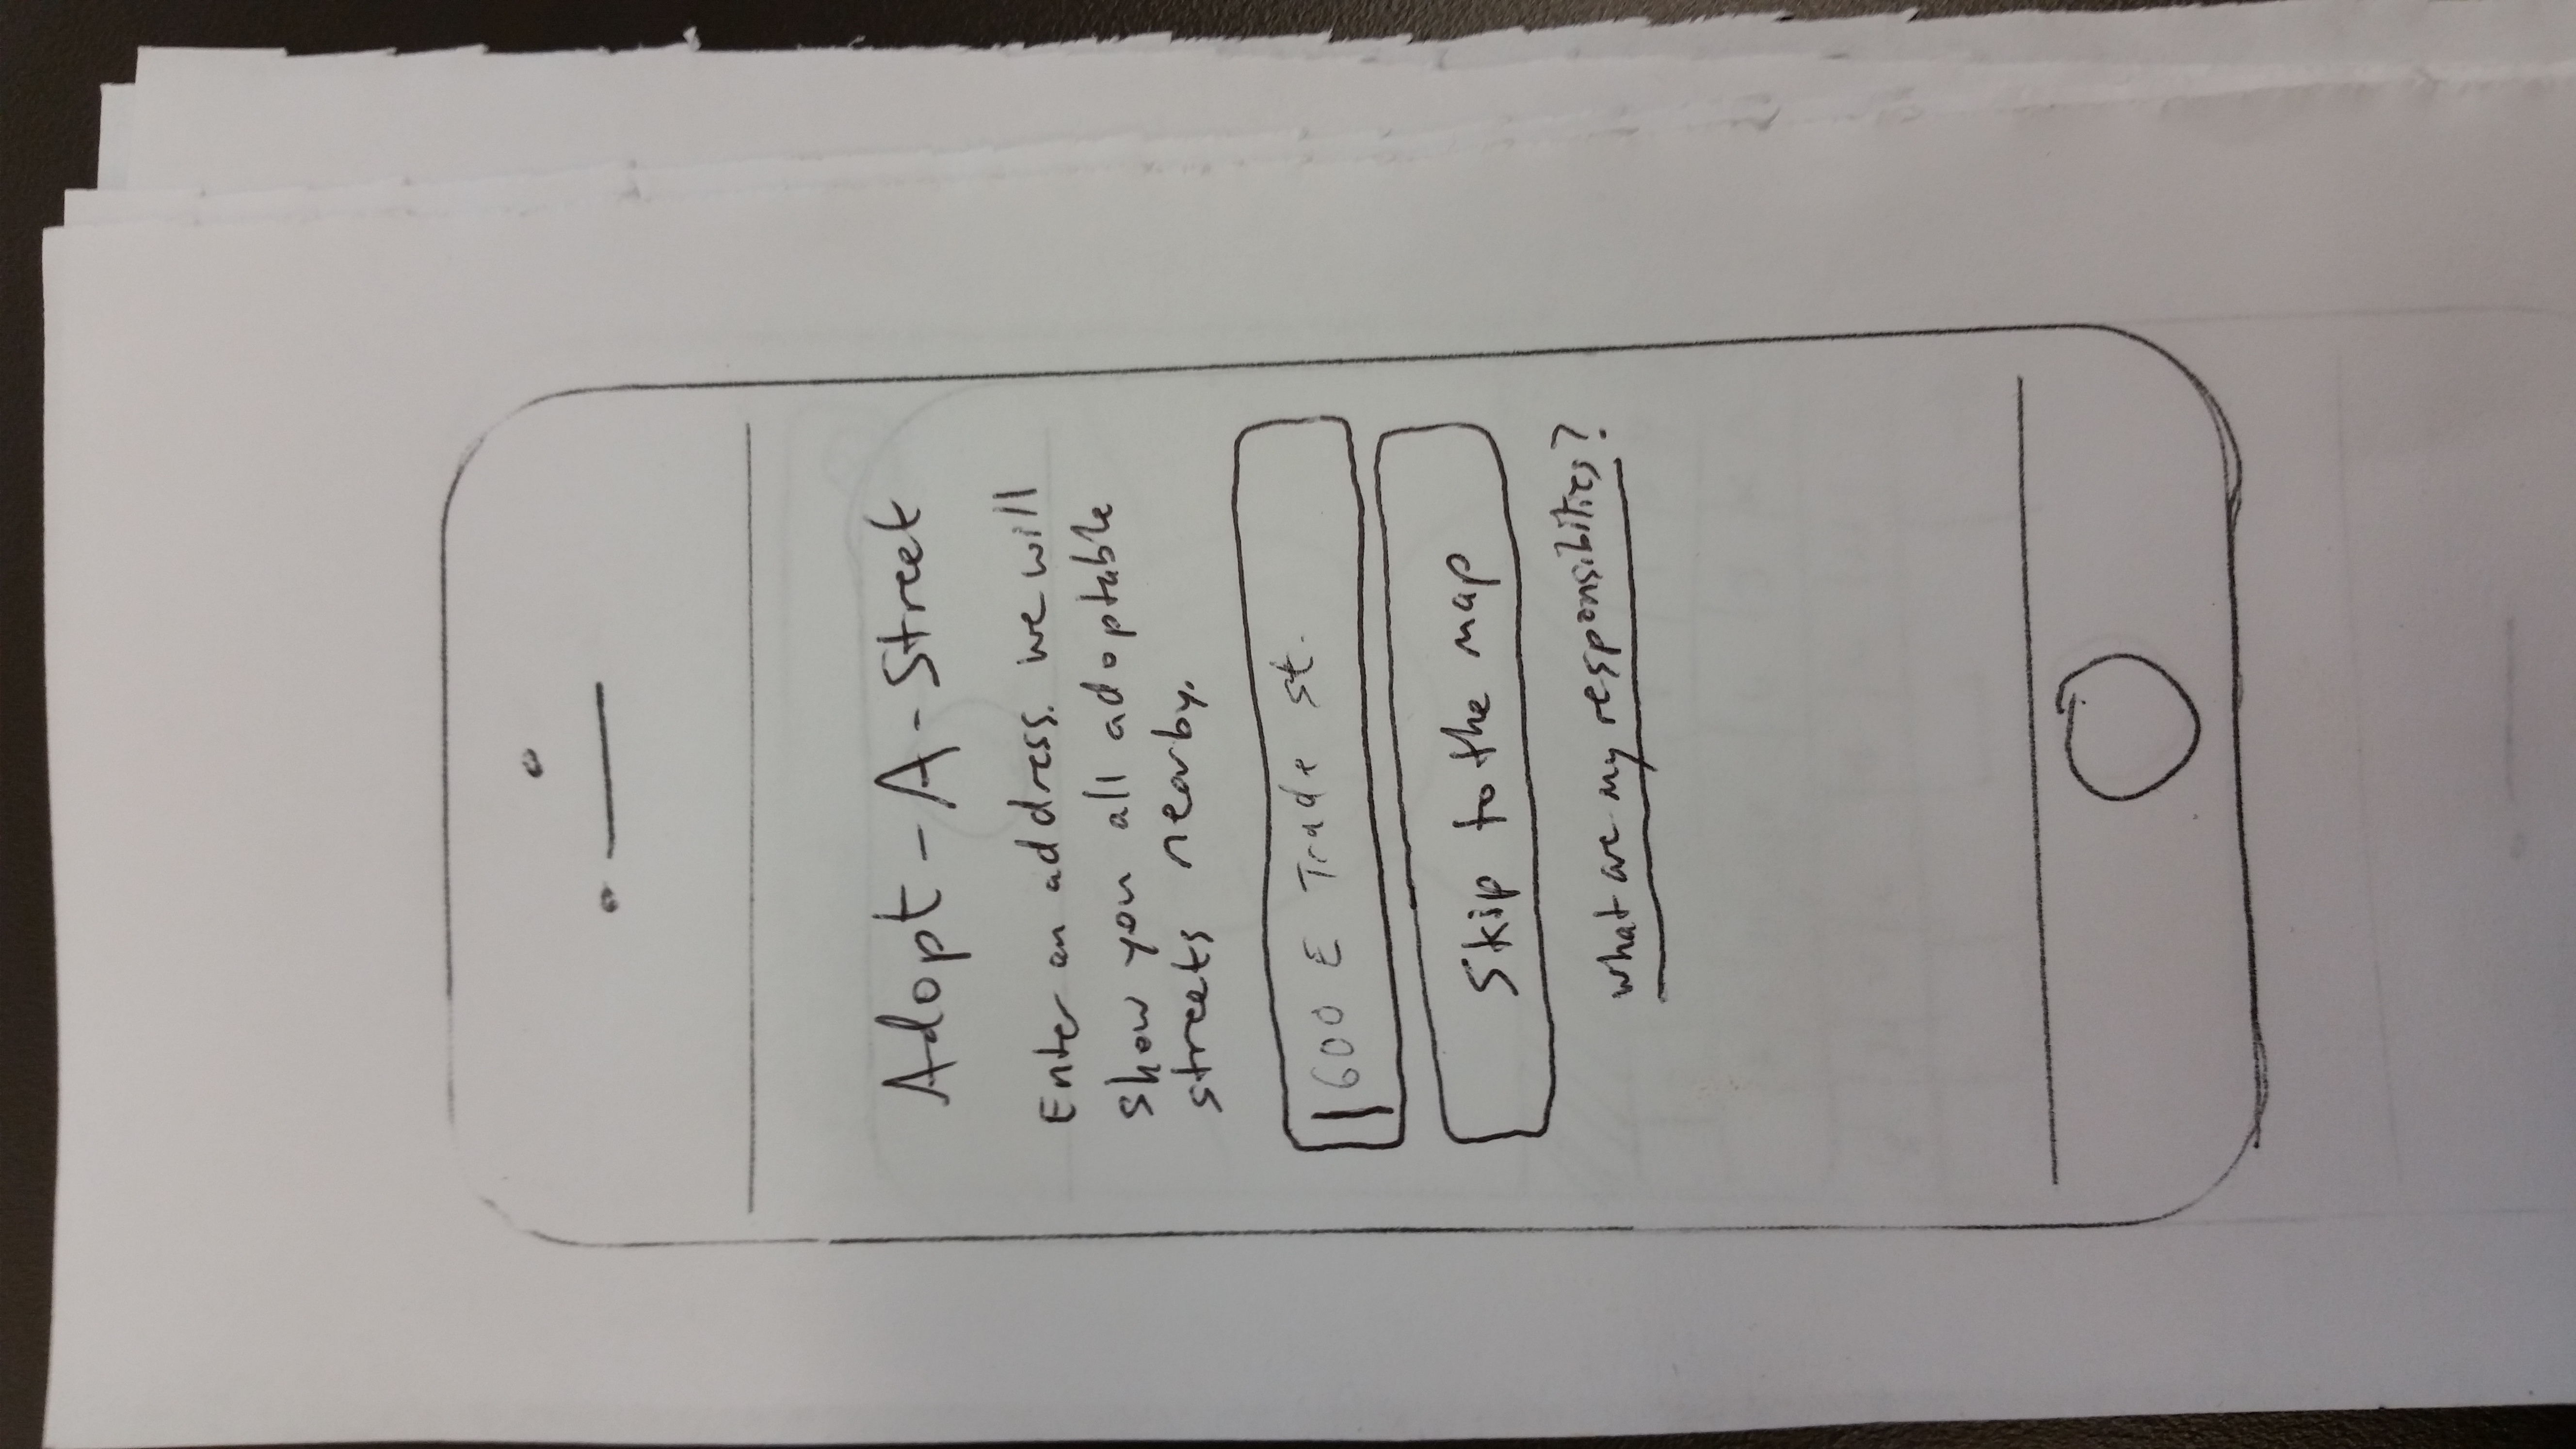 Adopt-A-Street
Enter an address. we will
show you all adoptable
streets nearby.
600 E Trade st.
Skip to the map
what are my responsibilities?